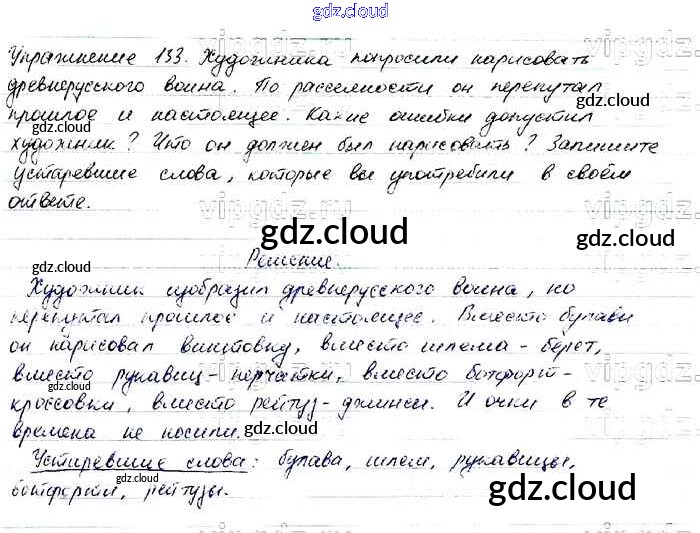 gdz.cloud
Упражнение 133. Художника попросили нарисовать
древнерусского воина. По рассеяности он перепутал
gdz.cloud
прошлое и настоящее. Какие ошибки допустил
gdz.cloud
художник? Что он должен был нарисовать? Запишите
устаревшие слова, которые вы употребили в своём
ответе.
vipgdz.ru
gdz.cloud
Решение.
gdz.cloud
Художник изобразил древнерусского воина, но
перепутал прошлое и настоящее. Вместо булавы
он нарисовал винтовку, вместо шлема - берет,
вместо рукавиц - перчатки, вместо ботфорт -
gdz.cloud
кроссовки, вместо рейтуз - джинсы. И очки в те
времена не носили.
gdz.cloud
Устаревшие слова: булава, шлем, рукавицы,
ботфорты, рейтузы.
gdz.cloud
gdz.cloud